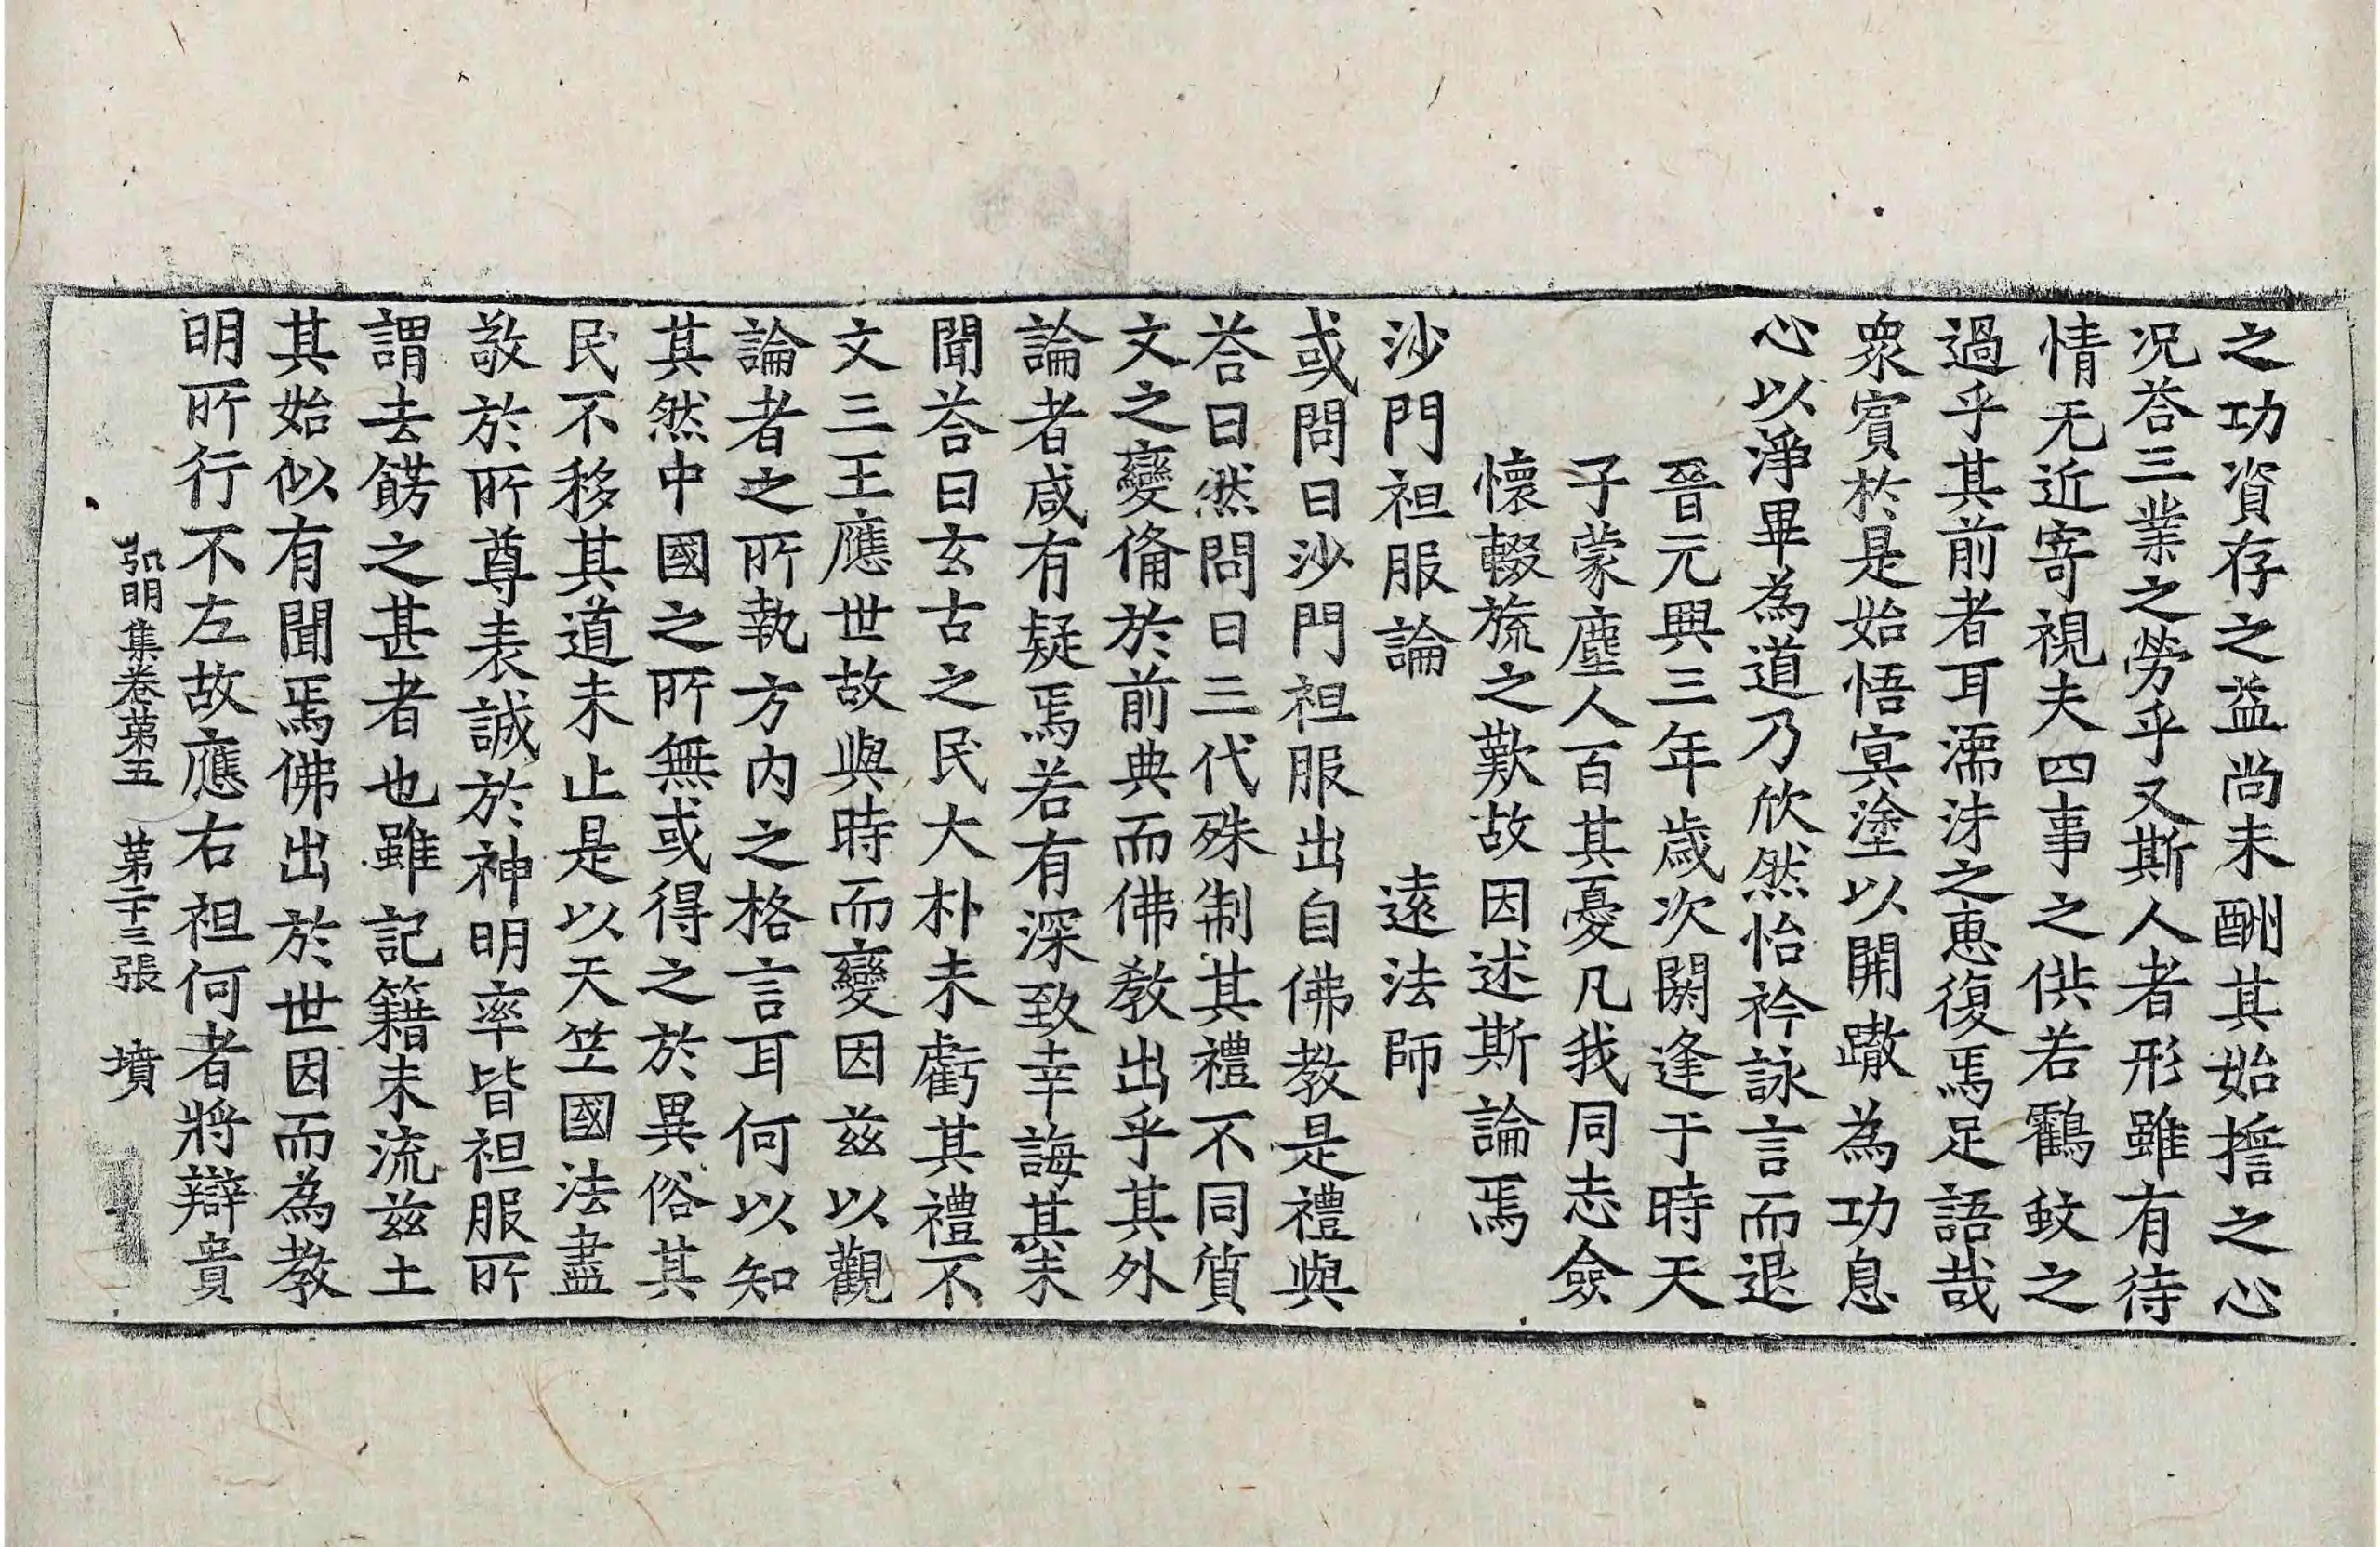 之功資存之益尚未酬其始擔之心
况荅三業之勞乎又斯人者形雖有待
情无近寄視夫四事之供若鸖蚊之
過乎其前者耳濡沫之惠復焉足語哉
衆賓於是始悟冥塗以開轍為功息
心以淨畢為道乃欣然怡衿詠言而退
晉元興三年歲次閼逢于時天
子蒙塵人百其憂凡我同志僉
懷輟旒之歎故因述斯論焉
沙門袒服論 遠法師
或問曰沙門袒服出自佛教是禮與
荅曰然問曰三代殊制其禮不同質
文之變備於前典而佛教出乎其外
論者咸有疑焉若有深致幸誨其未
聞荅曰玄古之民大朴未虧其禮不
文三王應世故與時而變因茲以觀
論者之所執方内之格言耳何以知
其然中國之所無或得之於異俗其
民不移其道未止是以天竺國法盡
敬於所尊表誠於神明率皆袒服所
謂去餝之甚者也雖記籍未流茲土
其始似有聞焉佛出於世因而為教
明所行不左故應右袒何者將辯貴
弘明集卷第五 第二十三張 墳